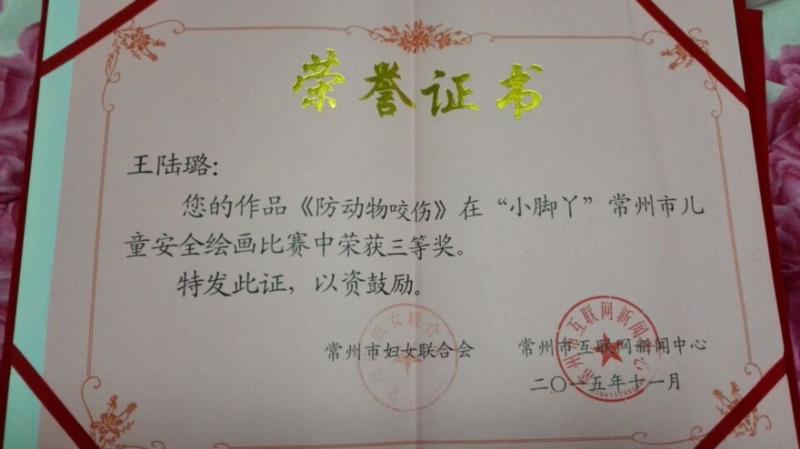 荣誉证书
王陆璐：
您的作品《防动物咬伤》在“小脚丫”常州市儿
童安全绘画比赛中荣获三等奖。
特发此证，以资鼓励。
常州市妇女联合会 常州市互联网新闻中心
二〇一五年十一月